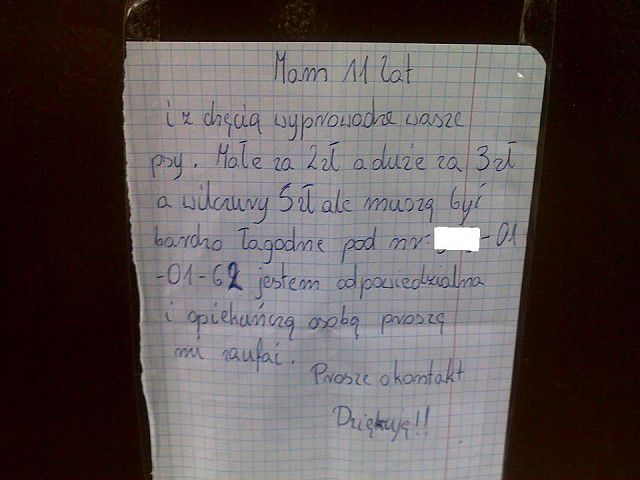 Mam 11 lat
i z chęcią wyprowadzę wasze
psy. Małe za 2zł a duże za 3zł
a wilczury 5zł ale muszą być
bardzo łagodne pod nr. -01
-01-62 jestem odpowiedzialna
i opiekuńczą osobą proszę
mi zaufać.
Prosze o kontakt
Dziękuję!!